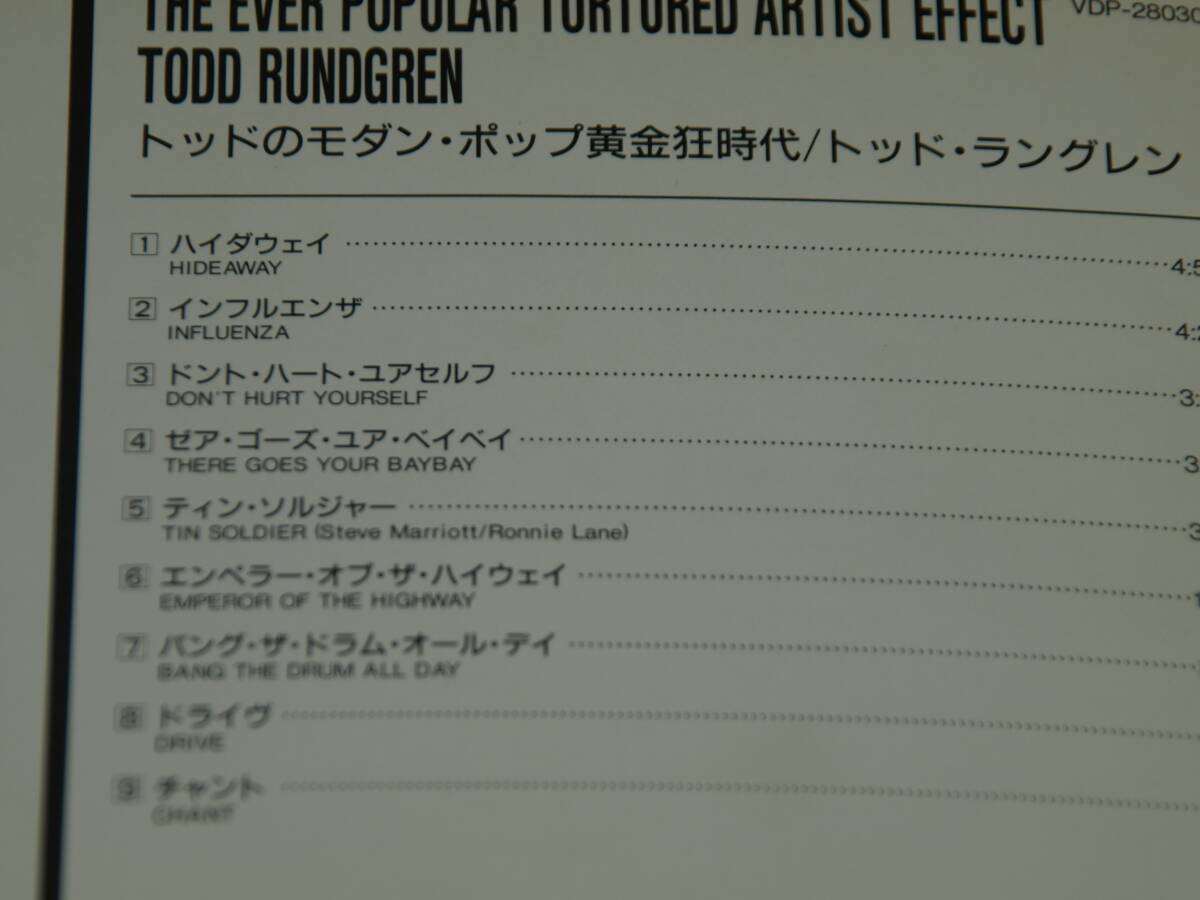 THE EVER POPULAR TORTURED ARTIST EFFECT
VDP-28030
TODD RUNDGREN
トッドのモダン・ポップ黄金狂時代/トッド・ラングレン
1 ハイダウェイ 4:5
HIDEAWAY
2 インフルエンザ 4:2
INFLUENZA
3 ドント・ハート・ユアセルフ 3:
DON'T HURT YOURSELF
4 ゼア・ゴーズ・ユア・ベイベイ 3
THERE GOES YOUR BAYBAY
5 ティン・ソルジャー 3
TIN SOLDIER (Steve Marriott/Ronnie Lane)
6 エンペラー・オブ・ザ・ハイウェイ 1
EMPEROR OF THE HIGHWAY
7 バング・ザ・ドラム・オール・デイ
BANG THE DRUM ALL DAY
8 ドライヴ
DRIVE
9 チャント
CHANT